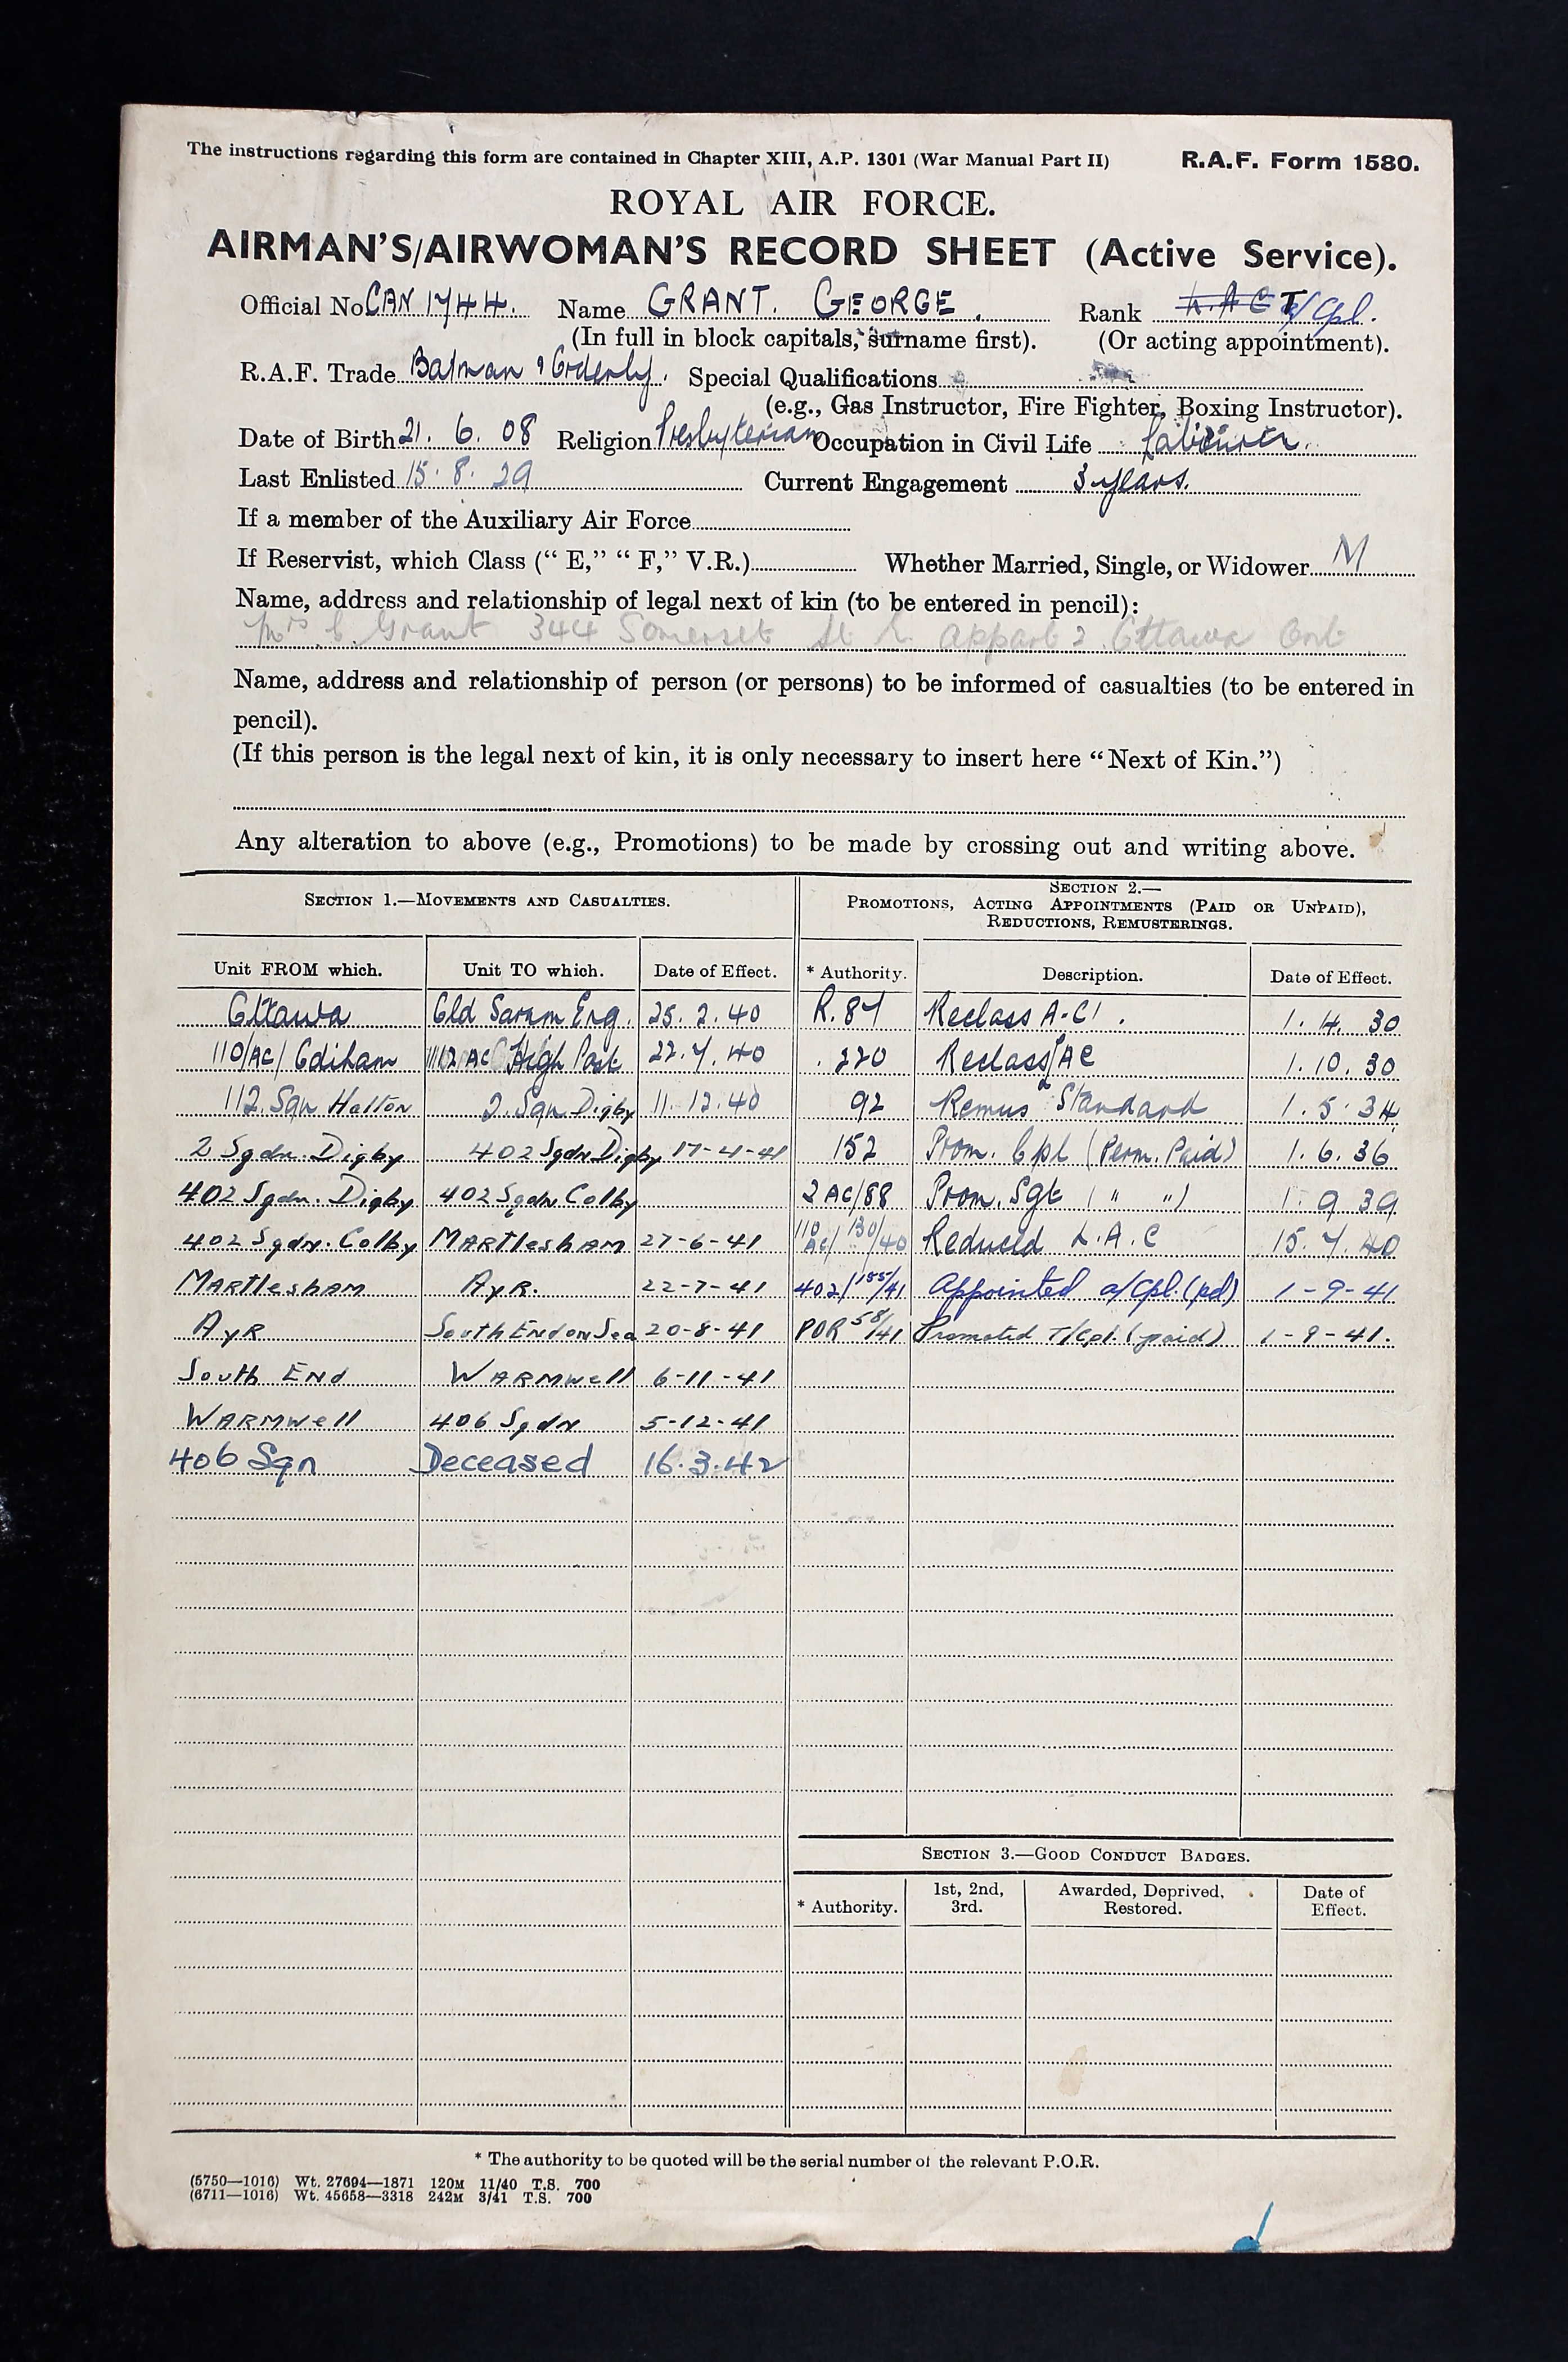 The instructions regarding this form are contained in Chapter XIII, A.P. 1301 (War Manual Part II) R.A.F. Form 1580.
ROYAL AIR FORCE.
AIRMAN'S/AIRWOMAN'S RECORD SHEET (Active Service).
Official No. CAN 1744. Name GRANT. GEORGE. Rank L.A.C T/Cpl.
(In full in block capitals, surname first). (Or acting appointment).
R.A.F. Trade Batman & Orderly. Special Qualifications
(e.g., Gas Instructor, Fire Fighter, Boxing Instructor).
Date of Birth 21. 6. 08 Religion Presbyterian Occupation in Civil Life Labourer.
Last Enlisted 15. 8. 29 Current Engagement 3 years.
If a member of the Auxiliary Air Force
If Reservist, which Class (" E," " F," V.R.) Whether Married, Single, or Widower M
Name, address and relationship of legal next of kin (to be entered in pencil):
Mrs Grant 344 Somerset St E. Appart 2 Ottawa Ont
Name, address and relationship of person (or persons) to be informed of casualties (to be entered in
pencil).
(If this person is the legal next of kin, it is only necessary to insert here "Next of Kin.")
Any alteration to above (e.g., Promotions) to be made by crossing out and writing above.
SECTION 1.—MOVEMENTS AND CASUALTIES. SECTION 2.—
PROMOTIONS, ACTING APPOINTMENTS (PAID OR UNPAID),
REDUCTIONS, REMUSTERINGS.
Unit FROM which. Unit TO which. Date of Effect. * Authority. Description. Date of Effect.
Ottawa Old Sarum Eng. 25. 2. 40 R.87 Reclass A.C1. 1. 4. 30
110/AC/ Odiham 112 AC High Post 22. 7. 40 220 Reclass LAC 1. 10. 30
112. Sqn Halton 2. Sqn Digby 11. 12. 40 92 Remus Standard 1. 5. 34
2 Sqdn. Digby 402 Sqdn Digby 17-4-41 152 Prom. Cpl (Perm. Paid) 1. 6. 36
402 Sqdn. Digby 402 Sqdn Colby 2 AC/88 Prom. Sgt ( " " ) 1. 9 39
402 Sqdn. Colby MARTlesHAM 27-6-41 110 AC/ 130/40 Reduced L.A.C 15. 7. 40
MARTlesHAM AyR. 22-7-41 402/155/41 Appointed a/Cpl. (pd) 1-9-41
AyR South End on Sea 20-8-41 POR 58/41 Promoted T/Cpl. (paid) 1-9-41.
South End WARMwell 6-11-41
WARMwell 406 Sqdn 5-12-41
406 Sqn Deceased 16.3.42
SECTION 3.—GOOD CONDUCT BADGES.
* Authority. 1st, 2nd, 3rd. Awarded, Deprived, Restored. Date of Effect.
* The authority to be quoted will be the serial number of the relevant P.O.R.
(5750—1016) Wt. 27694—1871 120M 11/40 T.S. 700
(6711—1016) Wt. 45658—3318 242M 3/41 T.S. 700